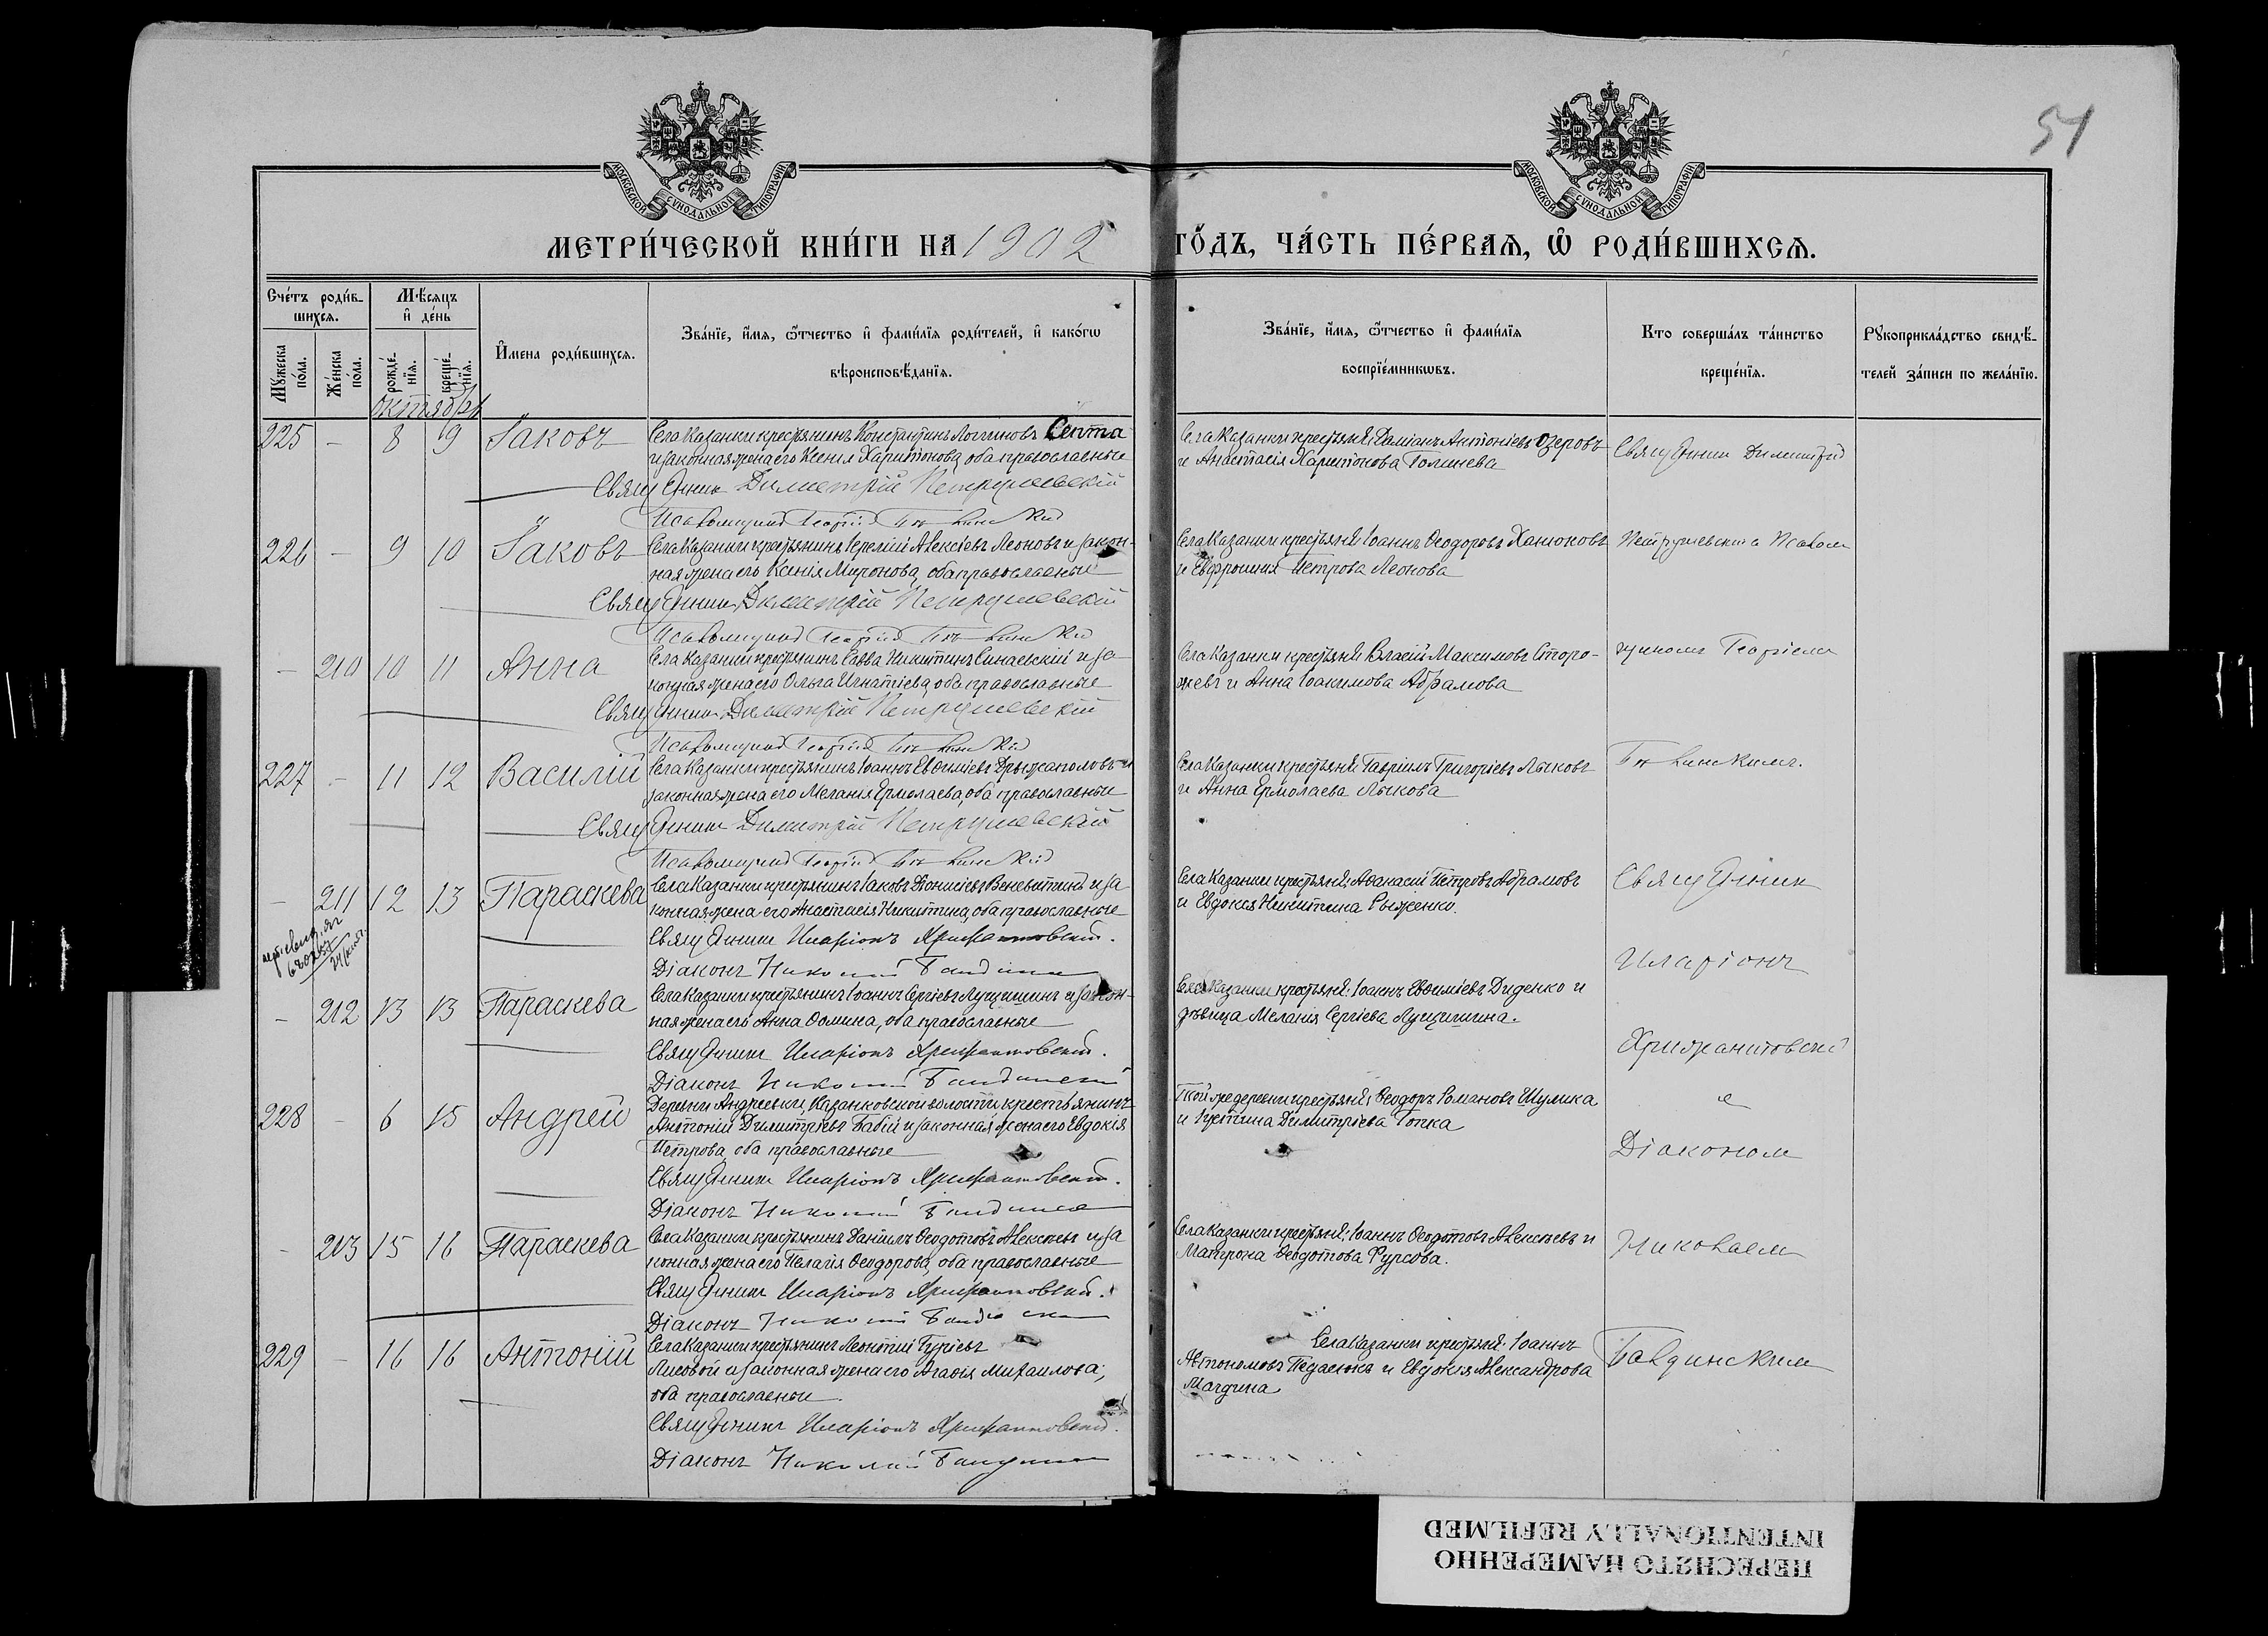 51
МОСКОВСКОЙ СУНОДАЛЬНОЙ ТИПОГРАФІИ
МОСКОВСКОЙ СУНОДАЛЬНОЙ ТИПОГРАФІИ
МЕТРИ́ЧЕСКОЙ КНИ́ГИ НА 1902 ГО́ДЪ, ЧА́СТЬ ПЕ́РВАѦ, Ѽ РОДИ́ВШИХСѦ.
Счетъ роди́в-
шихсѧ.
Мѣсѧцъ
и̑ де́нь
Мꙋжеска по́ла.
Же́нска по́ла.
рожде́-нїѧ.
креще́-нїѧ.
И҆мена роди́вшихсѧ.
Зва́нїе, и҆́мѧ, ѻ҆́тчество и҆ фами́лїѧ роди́телей, и҆ како́гѡ
вѣроисповѣ́данїѧ.
Зва́нїе, и҆́мѧ, ѻ҆́тчество и҆ фами́лїѧ
воспрїе́мникѡвъ.
Кто соверша́лъ та́инство
креще́нїѧ.
Рꙋкоприкла́дство свидѣ́-
телей за́писи по жела́нїю.
октября
225 — 8 9 Іаковъ
Села Казанки крестьянинъ Константинъ Логиновъ Септа
и законная жена его Ксенія Харитонова, оба православные
Священник Димитрій Петрушевскій
Псаломщикъ Георгій
Села Казанки крестьяне: Даміанъ Антоніевъ Озеровъ
и Анастасія Харитонова Голинева
Священник Димитрій
226 — 9 10 Іаковъ
Села Казанки крестьянинъ Іеремій Алексіевъ Леоновъ и закон-
ная жена его Ксенія Миронова, оба православные
Священник Димитрій Петрушевскій
Псаломщикъ Георгій
Села Казанки крестьяне: Іоаннъ Ѳеодоровъ Ханюковъ
и Евфросинія Петрова Леонова
Петрушевским с Псалом
— 210 10 11 Анна
Села Казанки крестьянинъ Савва Никитинъ Синаевскій и за-
конная жена его Ольга Игнатіева, оба православные
Священник Димитрій Петрушевскій
Псаломщикъ Георгій
Села Казанки крестьяне: Власій Максимовъ Сторо-
жевъ и Анна Іоакимова Абрамова
щиком Георгіем
227 — 11 12 Василій
Села Казанки крестьянинъ Іоаннъ Евѳиміевъ Дрыжаполовъ и
законная жена его Меланія Ермолаева, оба православные
Священник Димитрій Петрушевскій
Псаломщикъ Георгій
Села Казанки крестьяне: Гавріилъ Григоріевъ Лыковъ
и Анна Ермолаева Лыкова
— 211 12 13 Параскева
Села Казанки крестьянинъ Іаковъ Діонисіевъ Веневитинъ и за
конная жена его Анастасія Никитина, оба православные
Священник Иларіонъ Хрисранфовскій.
Діаконъ Николай
Села Казанки крестьяне: Аѳанасій Петровъ Абрамовъ
и Евдокія Никитина Рыженко.
Священник
Иларіонъ
— 212 13 13 Параскева
Села Казанки крестьянинъ Іоаннъ Сергіевъ Лущишинъ и закон-
ная жена его Анна Ѳомина, оба православные
Священник Иларіонъ
Діаконъ Николай
Села Казанки крестьяне: Іоаннъ Евѳиміевъ Диденко и
дѣвица Меланія Сергіева Лущишина.
228 — 6 15 Андрей
Деревни Андреевки, Казанковской волости крестьянинъ
Антоній Димитріевъ Бабій и законная жена его Евдокія
Петрова, оба православные
Священник Иларіонъ
Діаконъ Николай
Той же деревни крестьяне: Ѳеодоръ Романовъ Шулика
и Іустина Димитріева Гопка
с
Діаконом
— 213 15 16 Параскева
Села Казанки крестьянинъ Даніилъ Ѳеодотовъ Алексѣевъ и за
конная жена его Пелагія Ѳеодорова, оба православные
Священник Иларіонъ
Діаконъ Николай
Села Казанки крестьяне: Іоаннъ Ѳеодотовъ Алексѣевъ и
Матрона Ѳеодотова Фурсова.
Николаем
229 — 16 16 Антоній
Села Казанки крестьянинъ Леонтій Гуріевъ
Лисовой и законная жена его Агаѳія Михаилова,
оба православные.
Священник Иларіонъ
Діаконъ Николай
Села Казанки крестьяне: Іоаннъ
Автономовъ Педасюкъ и Евдокія Александрова
Магдина
ПЕРЕСНЯТО НАМЕРЕННО
INTENTIONALLY REFILMED